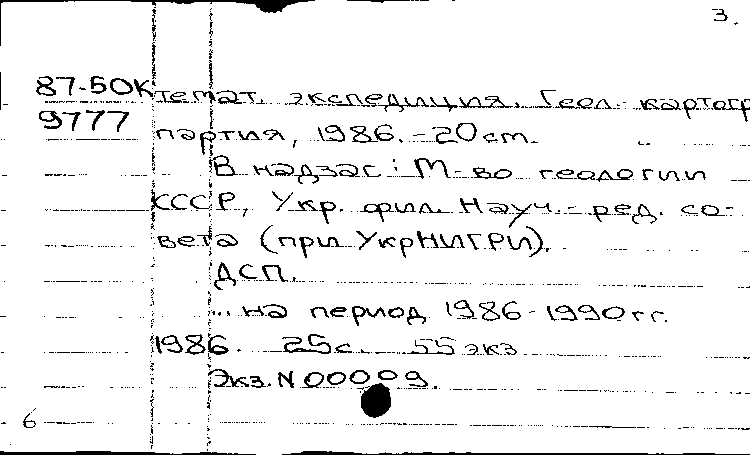 3.
87-50К темат. экспедиция. Геол.- картогр
9777 партия, 1986.-20 cm.
В надзаг: М-во геологии
СССР, Укр. фил. Науч.-ред. со-
вета (при УкрНИГРИ).
ДСП.
... на период 1986-1990гг.
1986. 25с. 55 экз
Экз. N 00009.
6